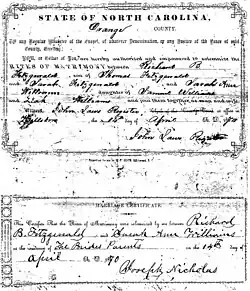 STATE OF NORTH CAROLINA,
Orange COUNTY.
of any Regular Minister of the Gospel, of whatever Denomination, or any Justice of the Peace of said
County, Greeting:
YOU, or Either of You, are hereby authorized and empowered to solemnize the
RITES OF MATRIMONY between Richard B
Fitzgerald, son of Thomas Fitzgerald
& Sarah Fitzgerald and Sarah Ann
Williams daughter of Samuel Williams
Williams and join them together as man and
Witness John Laws Register
April 1870
John Laws Register
MARRIAGE CERTIFICATE.
This Certifies that the Rites of Matrimony were solemnized by me between Richard
B. Fitzgerald and Sarah Ann Williams
at the residence of The Brides Parents on the 14th day of
April A. D. 1870
Joseph Nicholas